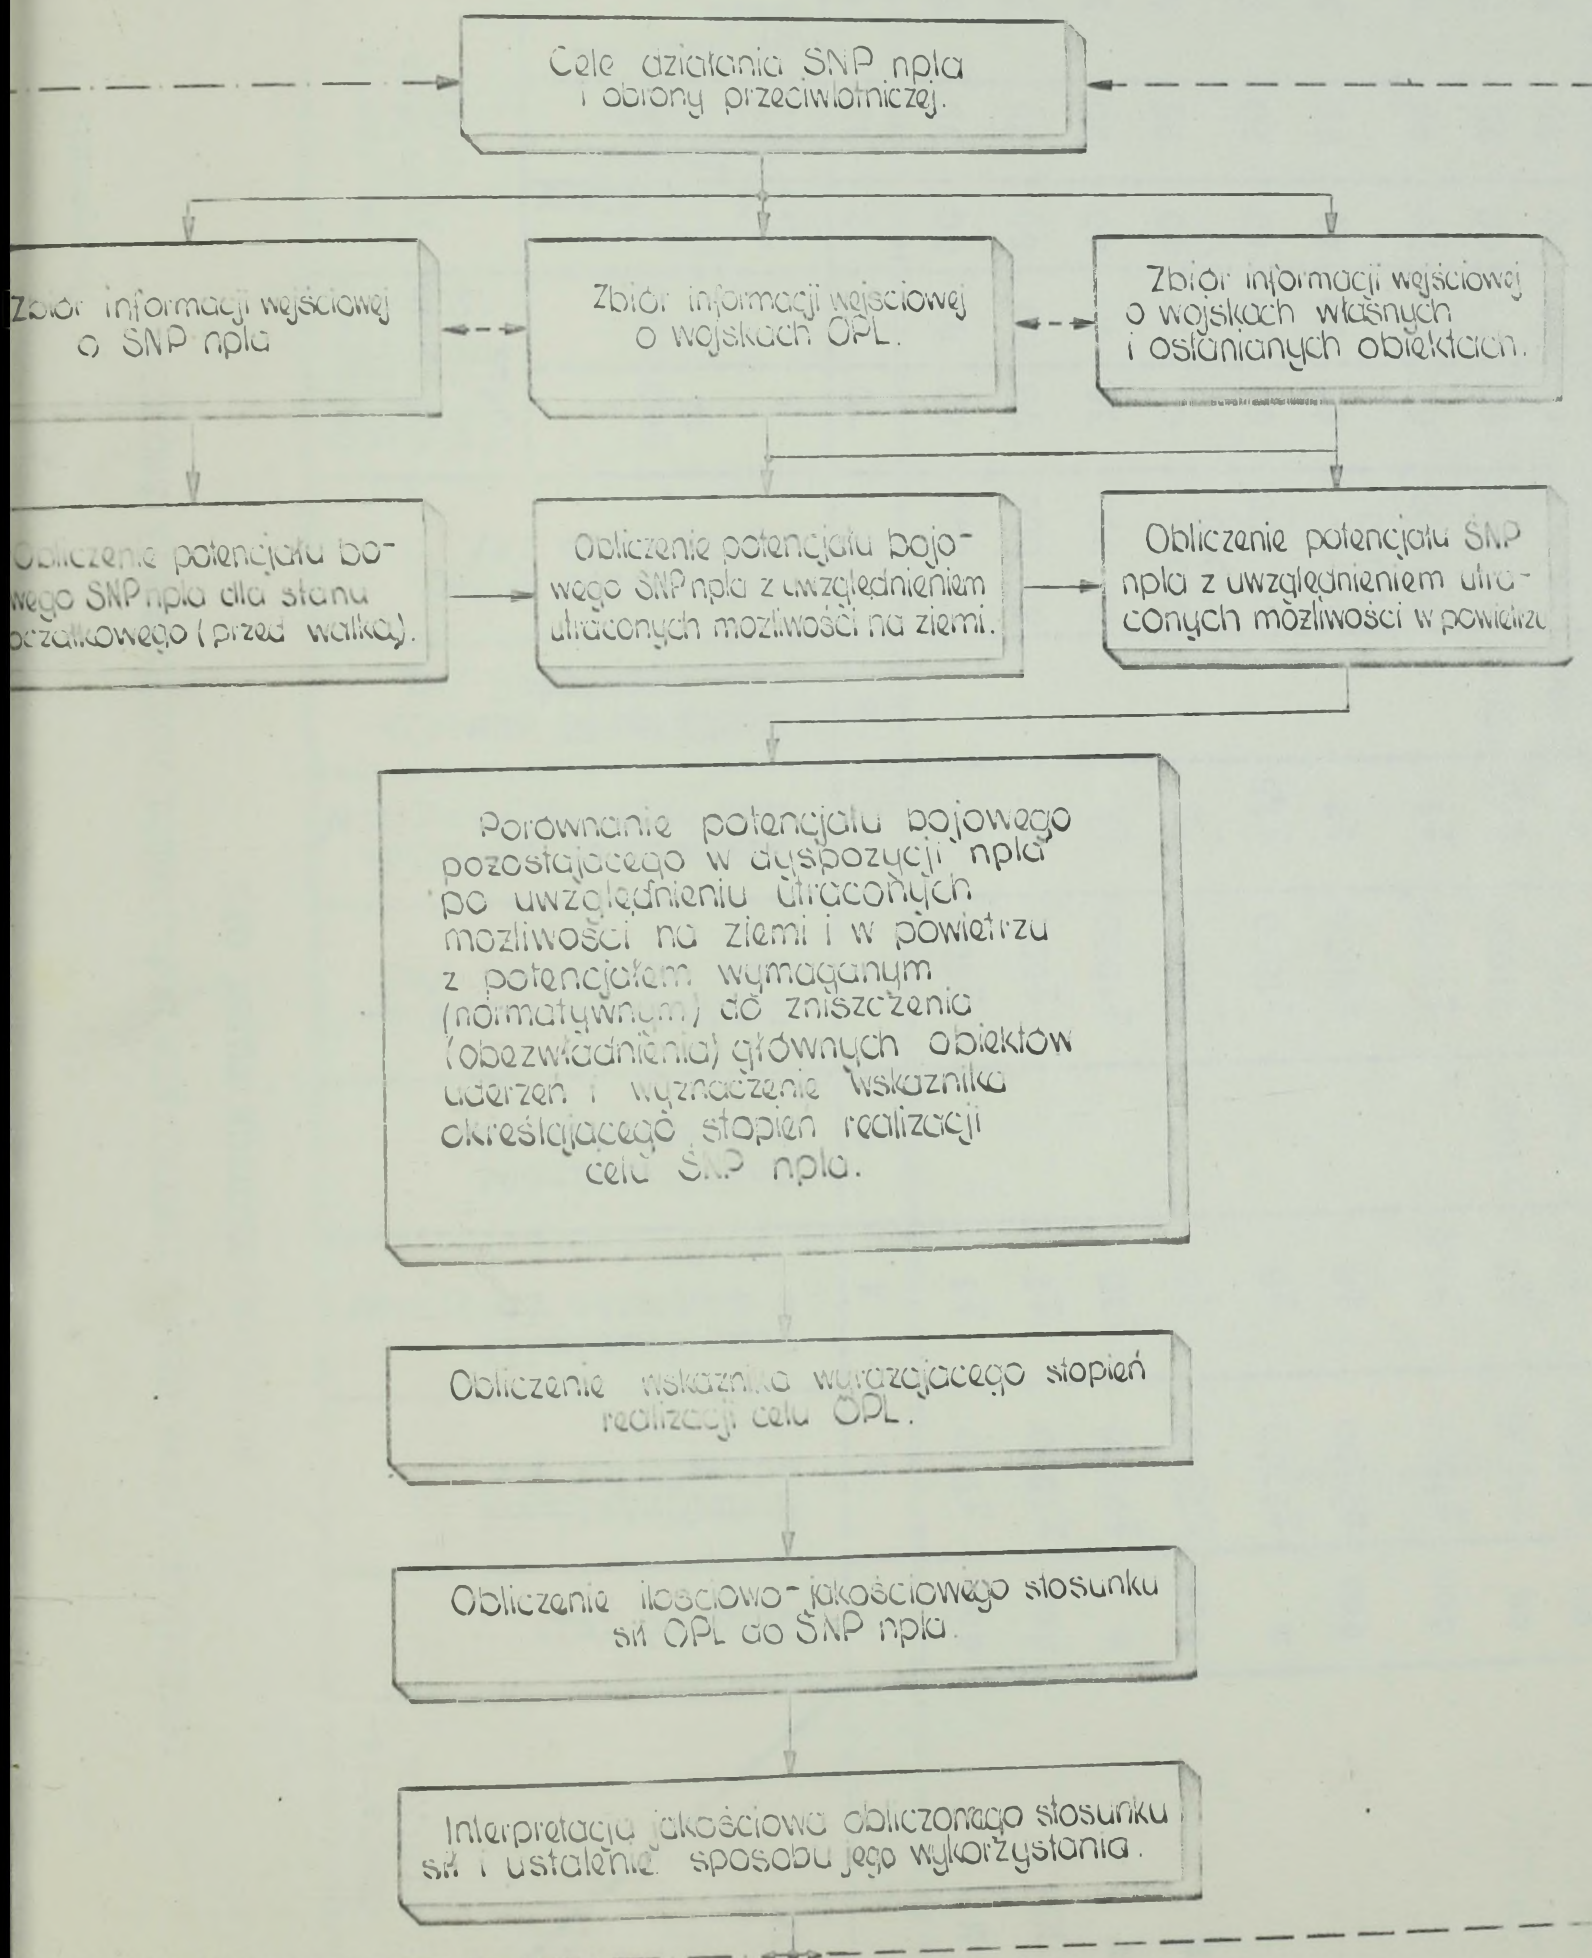 Cele działania ŚNP npla
i obrony przeciwlotniczej.
Zbiór informacji wejściowej
o ŚNP npla
Zbiór informacji wejściowej
o wojskach OPL.
Zbiór informacji wejściowej
o wojskach własnych
i osłanianych obiektach.
Obliczenie potencjału bo-
wego ŚNP npla dla stanu
oczątkowego (przed walką).
Obliczenie potencjału bojo-
wego ŚNP npla z uwzględnieniem
utraconych możliwości na ziemi.
Obliczenie potencjału ŚNP
npla z uwzględnieniem utra-
conych możliwości w powietrzu
Porównanie potencjału bojowego
pozostającego w dyspozycji npla
po uwzględnieniu utraconych
możliwości na ziemi i w powietrzu
z potencjałem wymaganym
(normatywnym) do zniszczenia
(obezwładnienia) głównych obiektów
uderzeń i wyznaczenie wskaźnika
określającego stopień realizacji
celu ŚNP npla.
Obliczenie wskaźnika wyrażającego stopień
realizacji celu OPL.
Obliczenie ilościowo-jakościowego stosunku
sił OPL do ŚNP npla.
Interpretacja jakościowa obliczonego stosunku
sił i ustalenie sposobu jego wykorzystania.